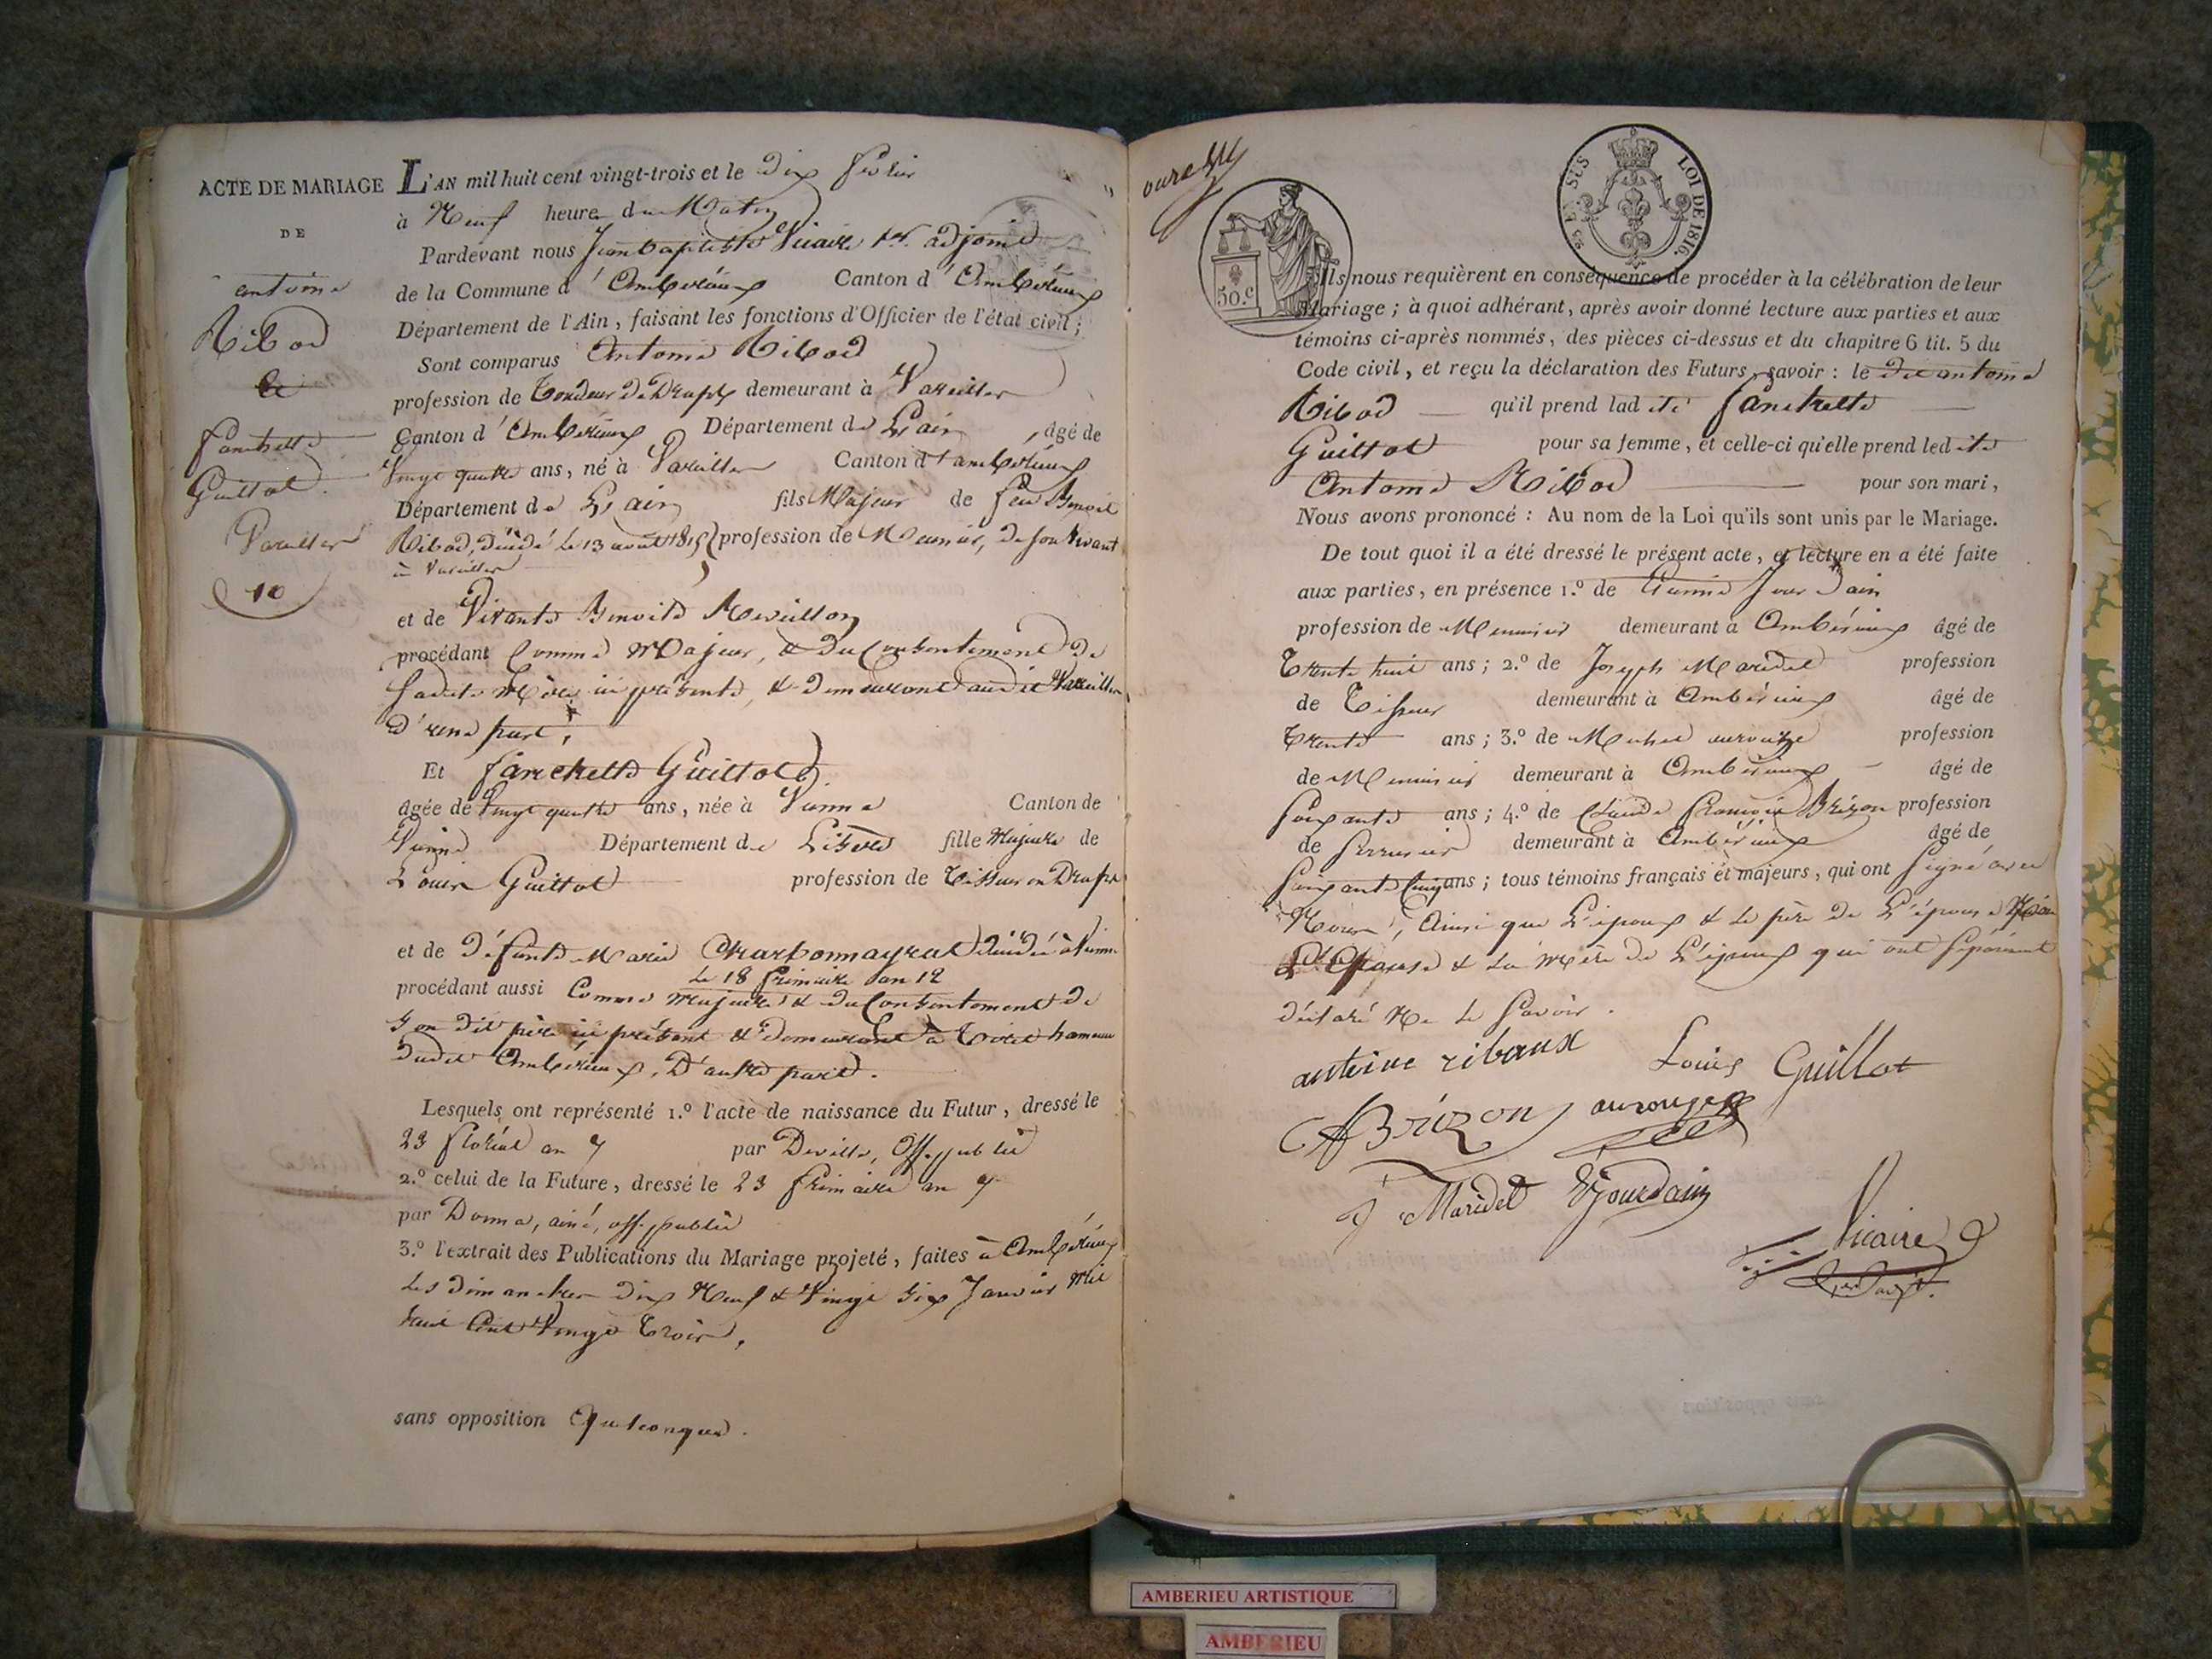 ACTE DE MARIAGE
DE
antoine
Ribod
&
fanchette
Guillot
Vareilles
10
L'AN mil huit cent vingt-trois et le Dix février
à Neuf heure du Matin
Pardevant nous Jean baptiste Vicaire 1er adjoint
de la Commune d'Ambérieux Canton d'Ambérieux
Département de l'Ain, faisant les fonctions d'Officier de l'état civil;
Sont comparus Antoine Ribod
profession de Tondeur de Draps demeurant à Vareilles
Canton d'Ambérieux Département de L'ain, âgé de
Vingt quatre ans, né à Vareilles Canton d'ambérieux
Département de L'ain fils Majeur de feu Benoit
Ribod, Décédé Le 13 août 1815 profession de Meunier, de son vivant
à Vareilles
et de Vivante Benoite Revillon
procédant Comme Majeur, & Du Consentement De
Sadite Mère ici présente, & Demeurant audit Vareilles
D'une part,
Et fanchette Guillot
âgée de Vingt quatre ans, née à Vienne Canton de
Vienne Département de L'isère fille Majeure de
Louis Guillot profession de Tisseur en Draps
et de Défunte Marie Charbonnayrat Décédée à Vienne
Le 18 frimaire an 12
procédant aussi Comme Majeure & du Consentement de
Son dit père ici présent & Demeurant à Tiret hameau
Dudit Ambérieux, D'autre part.
Lesquels ont représenté 1.º l'acte de naissance du Futur, dressé le
23 floréal an 7 par Deville, Off. public
2.º celui de la Future, dressé le 23 frimaire an 7
par Donna, ainé, off. public
3.º l'extrait des Publications du Mariage projeté, faites à Ambérieux
Les Dimanches Dix Neuf & Vingt Six Janvier Mil
huit Cent Vingt Trois,
sans opposition Quelconque.
50.c
EN SUS
LOI DE 1816.
Ils nous requièrent en conséquence de procéder à la célébration de leur
Mariage; à quoi adhérant, après avoir donné lecture aux parties et aux
témoins ci-après nommés, des pièces ci-dessus et du chapitre 6 tit. 5 du
Code civil, et reçu la déclaration des Futurs, savoir: le dit antoine
Ribod qu'il prend ladite fanchette
Guillot pour sa femme, et celle-ci qu'elle prend ledite
Antoine Ribod pour son mari,
Nous avons prononcé: Au nom de la Loi qu'ils sont unis par le Mariage.
De tout quoi il a été dressé le présent acte, et lecture en a été faite
aux parties, en présence 1.º de Etienne Jourdain
profession de Menuisier demeurant à Ambérieux âgé de
Trente huit ans; 2.º de Joseph Maridet profession
de Tisseur demeurant à Ambérieux âgé de
Trente ans; 3.º de Michel aurouze profession
de Menuisier demeurant à Ambérieux âgé de
Soixante ans; 4.º de Claude François Brizon profession
de Serrurier demeurant à Ambérieux âgé de
Soixante Cinq ans; tous témoins français et majeurs, qui ont Signé avec
Nous, Ainsi que L'époux & Le père De L'épouse Non
L'Epouse & La Mère De L'époux qui ont Séparément
déclaré Ne Le Savoir.
antoine ribaux Louis Guillot
CfBrizon aurouze
J Maridet EJourdain
Vicaire